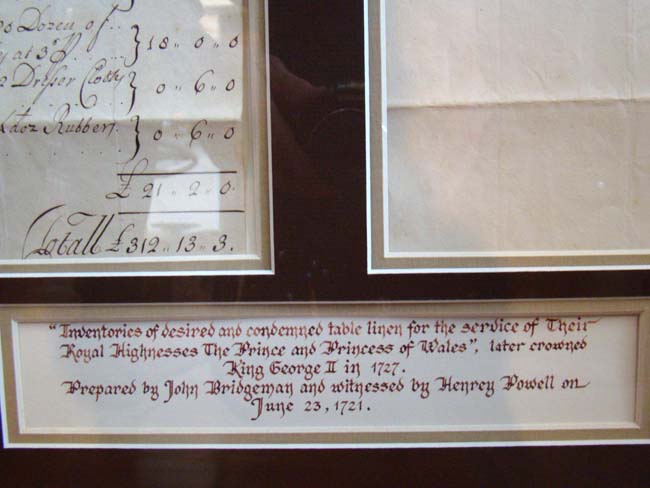 Dozen of
at 3 } 18 " 0 " 0
Dresser Cloths } 0 " 6 " 0
doz Rubbers } 0 " 6 " 0
£ 21 " 2 " 0
Totall £ 312 " 13 " 3.
"Inventories of desired and condemned table linen for the service of Their
Royal Highnesses The Prince and Princess of Wales", later crowned
King George II in 1727.
Prepared by John Bridgeman and witnessed by Henrey Powell on
June 23, 1721.